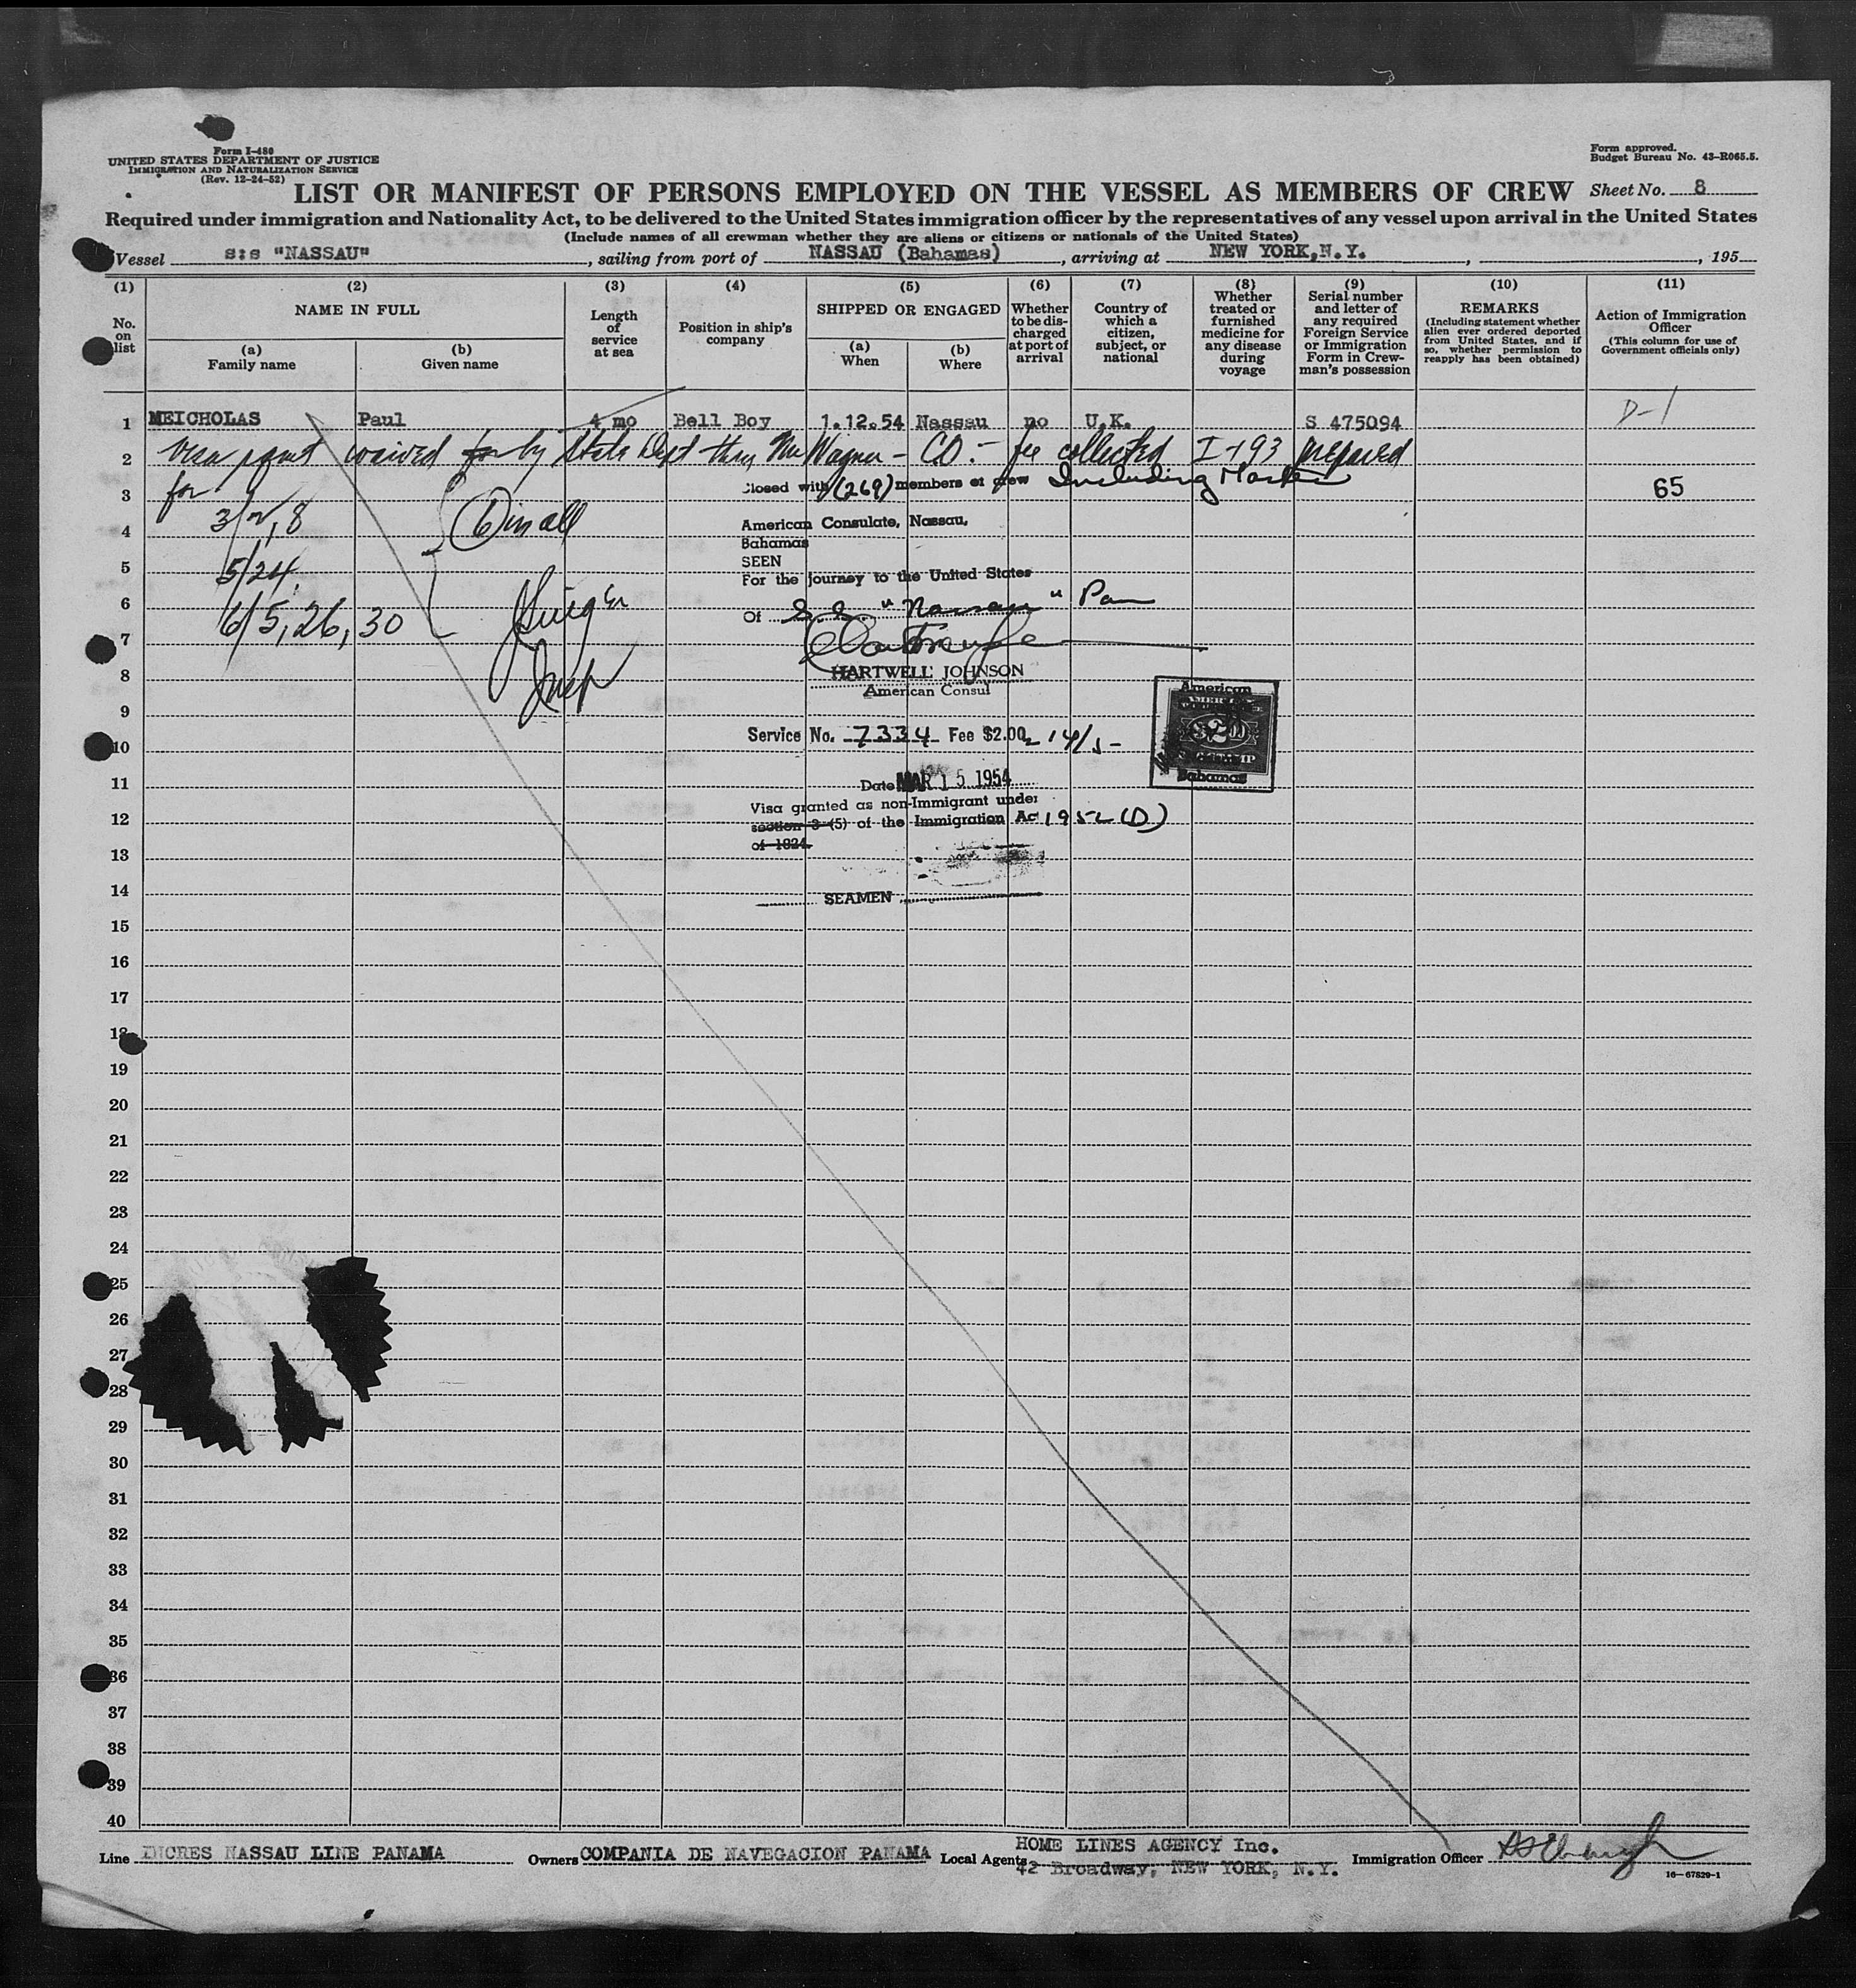 Form I-480
UNITED STATES DEPARTMENT OF JUSTICE
IMMIGRATION AND NATURALIZATION SERVICE
(Rev. 12-24-52)
Form approved.
Budget Bureau No. 43-R065.5.
LIST OR MANIFEST OF PERSONS EMPLOYED ON THE VESSEL AS MEMBERS OF CREW
Sheet No. 8
Required under immigration and Nationality Act, to be delivered to the United States immigration officer by the representatives of any vessel upon arrival in the United States
(Include names of all crewman whether they are aliens or citizens or nationals of the United States)
Vessel s:s "NASSAU", sailing from port of NASSAU (Bahamas), arriving at NEW YORK,N.Y., , 195
(1) No. on list
(2) NAME IN FULL
(a) Family name
(b) Given name
(3) Length of service at sea
(4) Position in ship's company
(5) SHIPPED OR ENGAGED
(a) When
(b) Where
(6) Whether to be discharged at port of arrival
(7) Country of which a citizen, subject, or national
(8) Whether treated or furnished medicine for any disease during voyage
(9) Serial number and letter of any required Foreign Service or Immigration Form in Crewman's possession
(10) REMARKS
(Including statement whether alien ever ordered deported from United States, and if so, whether permission to reapply has been obtained)
(11) Action of Immigration Officer
(This column for use of Government officials only)
1 MEICHOLAS Paul 4 mo Bell Boy 1.12.54 Nassau no U.K. S 475094 D-1
2 Visa waived for by State Dept thru Mr Wagner - CO.- fee collected I-193 prepared
3 for Closed with (269) members of crew Including Master 65
3/2,8
4 American Consulate, Nassau,
Bahamas
5 SEEN
5/24,
For the journey to the United States
6 Of S.S. "Nassau" Pan
6/5,26,30
7
8 HARTWELL JOHNSON
American Consul
9
10 Service No. 7334 Fee $2.00 14/5-
American
$2
Bahamas
11 Date MAR 15 1954
Visa granted as non-Immigrant under
12 section 3 (5) of the Immigration Ac 1952 (D)
of 1924.
13
14 SEAMEN
15
16
17
18
19
20
21
22
23
24
25
26
27
28
29
30
31
32
33
34
35
36
37
38
39
40
Line DICRES NASSAU LINE PANAMA Owners COMPANIA DE NAVEGACION PANAMA Local Agents HOME LINES AGENCY Inc.
42 Broadway, NEW YORK, N.Y. Immigration Officer
16—67829-1